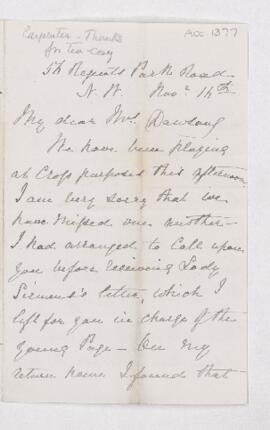 Carpenter - Thanks
for Tea Cosy
ACC 1377
54 Regents Park Road
N. W. Nov 14th
My dear Mrs. Dawtrey
We have been playing
at Cross purposes this afternoon
I am very sorry that we
have missed one another -
I had arranged to call upon
you before receiving Lady
letter, which I
left for you in charge of the
young Page - On my
return home I found that